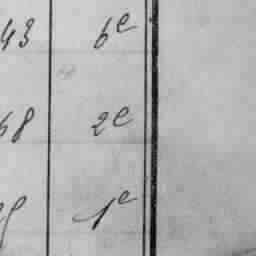 43 6e
68 2e
1e